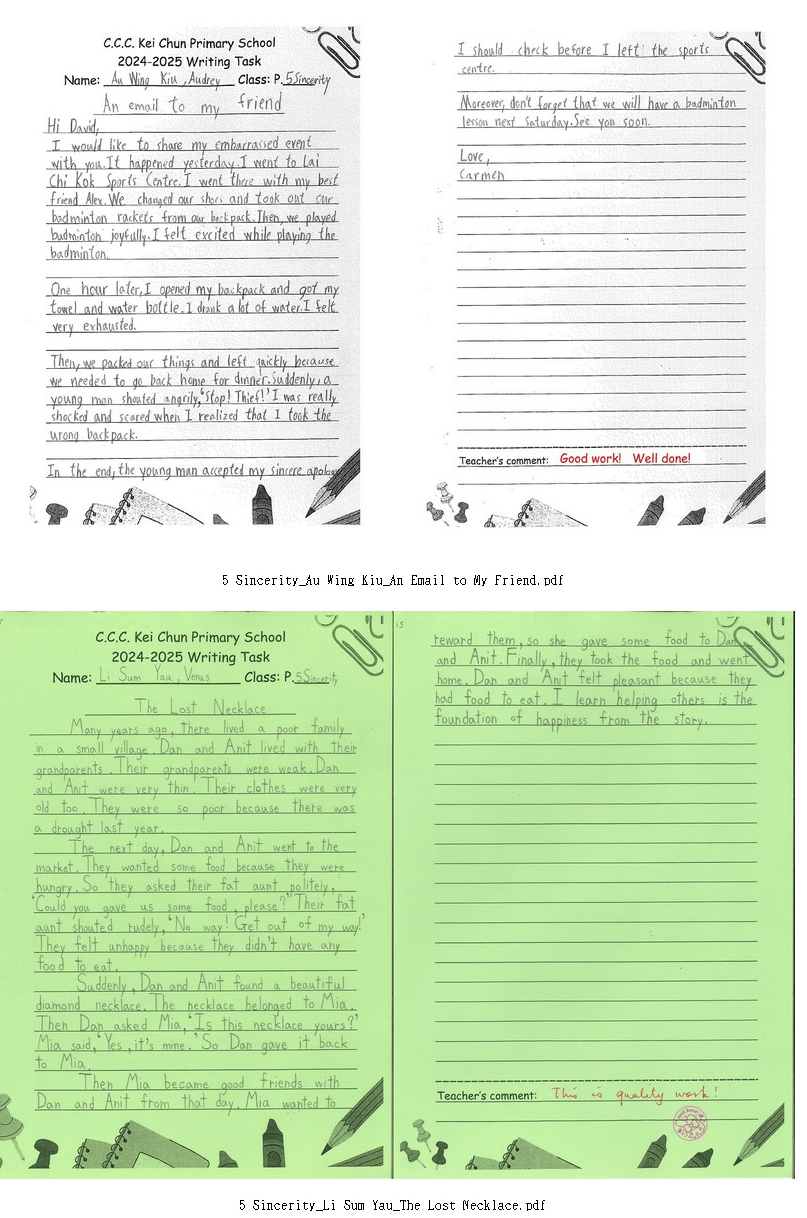 C.C.C. Kei Chun Primary School
2024-2025 Writing Task
Name: Au Wing Kiu, Audrey Class: P.5Sincerity
An email to my friend
Hi David,
I would like to share my embarrassed event
with you. It happened yesterday. I went to Lai
Chi Kok Sports Centre. I went there with my best
friend Alex. We changed our shoes and took out our
badminton rackets from our backpack. Then, we played
badminton joyfully. I felt excited while playing the
badminton.
One hour later, I opened my backpack and got my
towel and water bottle. I drank a lot of water. I felt
very exhausted.
Then, we packed our things and left quickly because
we needed to go back home for dinner. Suddenly, a
young man shouted angrily, 'Stop! Thief!' I was really
shocked and scared when I realized that I took the
wrong backpack.
In the end, the young man accepted my sincere apology
I should check before I left the sports
centre.
Moreover, don't forget that we will have a badminton
lesson next Saturday. See you soon.
Love,
Carmen
Teacher's comment: Good work! Well done!
5 Sincerity_Au Wing Kiu_An Email to My Friend.pdf
C.C.C. Kei Chun Primary School
2024-2025 Writing Task
Name: Li Sum Yau, Venus Class: P.5Sincerity
The Lost Necklace
Many years ago, there lived a poor family
in a small village. Dan and Anit lived with their
grandparents. Their grandparents were weak. Dan
and Anit were very thin. Their clothes were very
old too. They were so poor because there was
a drought last year.
The next day, Dan and Anit went to the
market. They wanted some food because they were
hungry. So they asked their fat aunt politely,
'Could you gave us some food, please?' Their fat
aunt shouted rudely, 'No way! Get out of my way!'
They felt unhappy because they didn't have any
food to eat.
Suddenly, Dan and Anit found a beautiful
diamond necklace. The necklace belonged to Mia.
Then Dan asked Mia, 'Is this necklace yours?'
Mia said, 'Yes, it's mine.' So Dan gave it back
to Mia.
Then Mia became good friends with
Dan and Anit from that day. Mia wanted to
15
reward them, so she gave some food to Dan
and Anit. Finally, they took the food and went
home. Dan and Anit felt pleasant because they
had food to eat. I learn helping others is the
foundation of happiness from the story.
Teacher's comment: This is quality work!
5 Sincerity_Li Sum Yau_The Lost Necklace.pdf